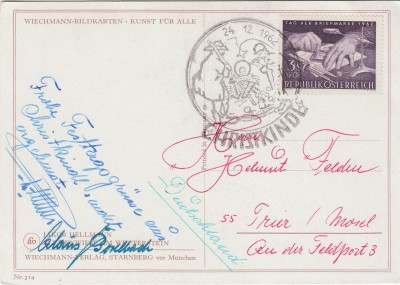 WIECHMANN-BILDKARTEN • KUNST FÜR ALLE
24.12.1962
TAG DER BRIEFMARKE 1962
3S+
90g
REPUBLIK ÖSTERREICH
CHRISTKINDL
Frohe Festtagsgrüsse aus
Christkindl sendet
ergebenst
Herrn
Helmut Felden
55 Trier / Mosel
An der Feldport 3
Deutschland
Printed in
WIECHMANN-VERLAG, STARNBERG vor München
Nr. 314